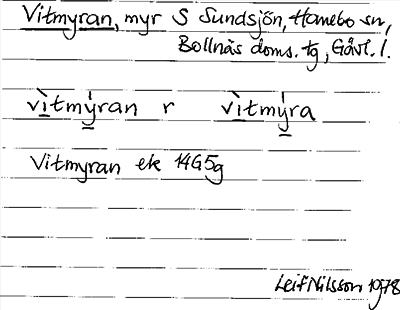 Vitmyran, myr S Sundsjön, Hanebo sn,
Bollnäs doms. tg, Gävl. l.
vìtmýran r vìtmýra
Vitmyran ek 14G5g
Leif Nilsson 1978